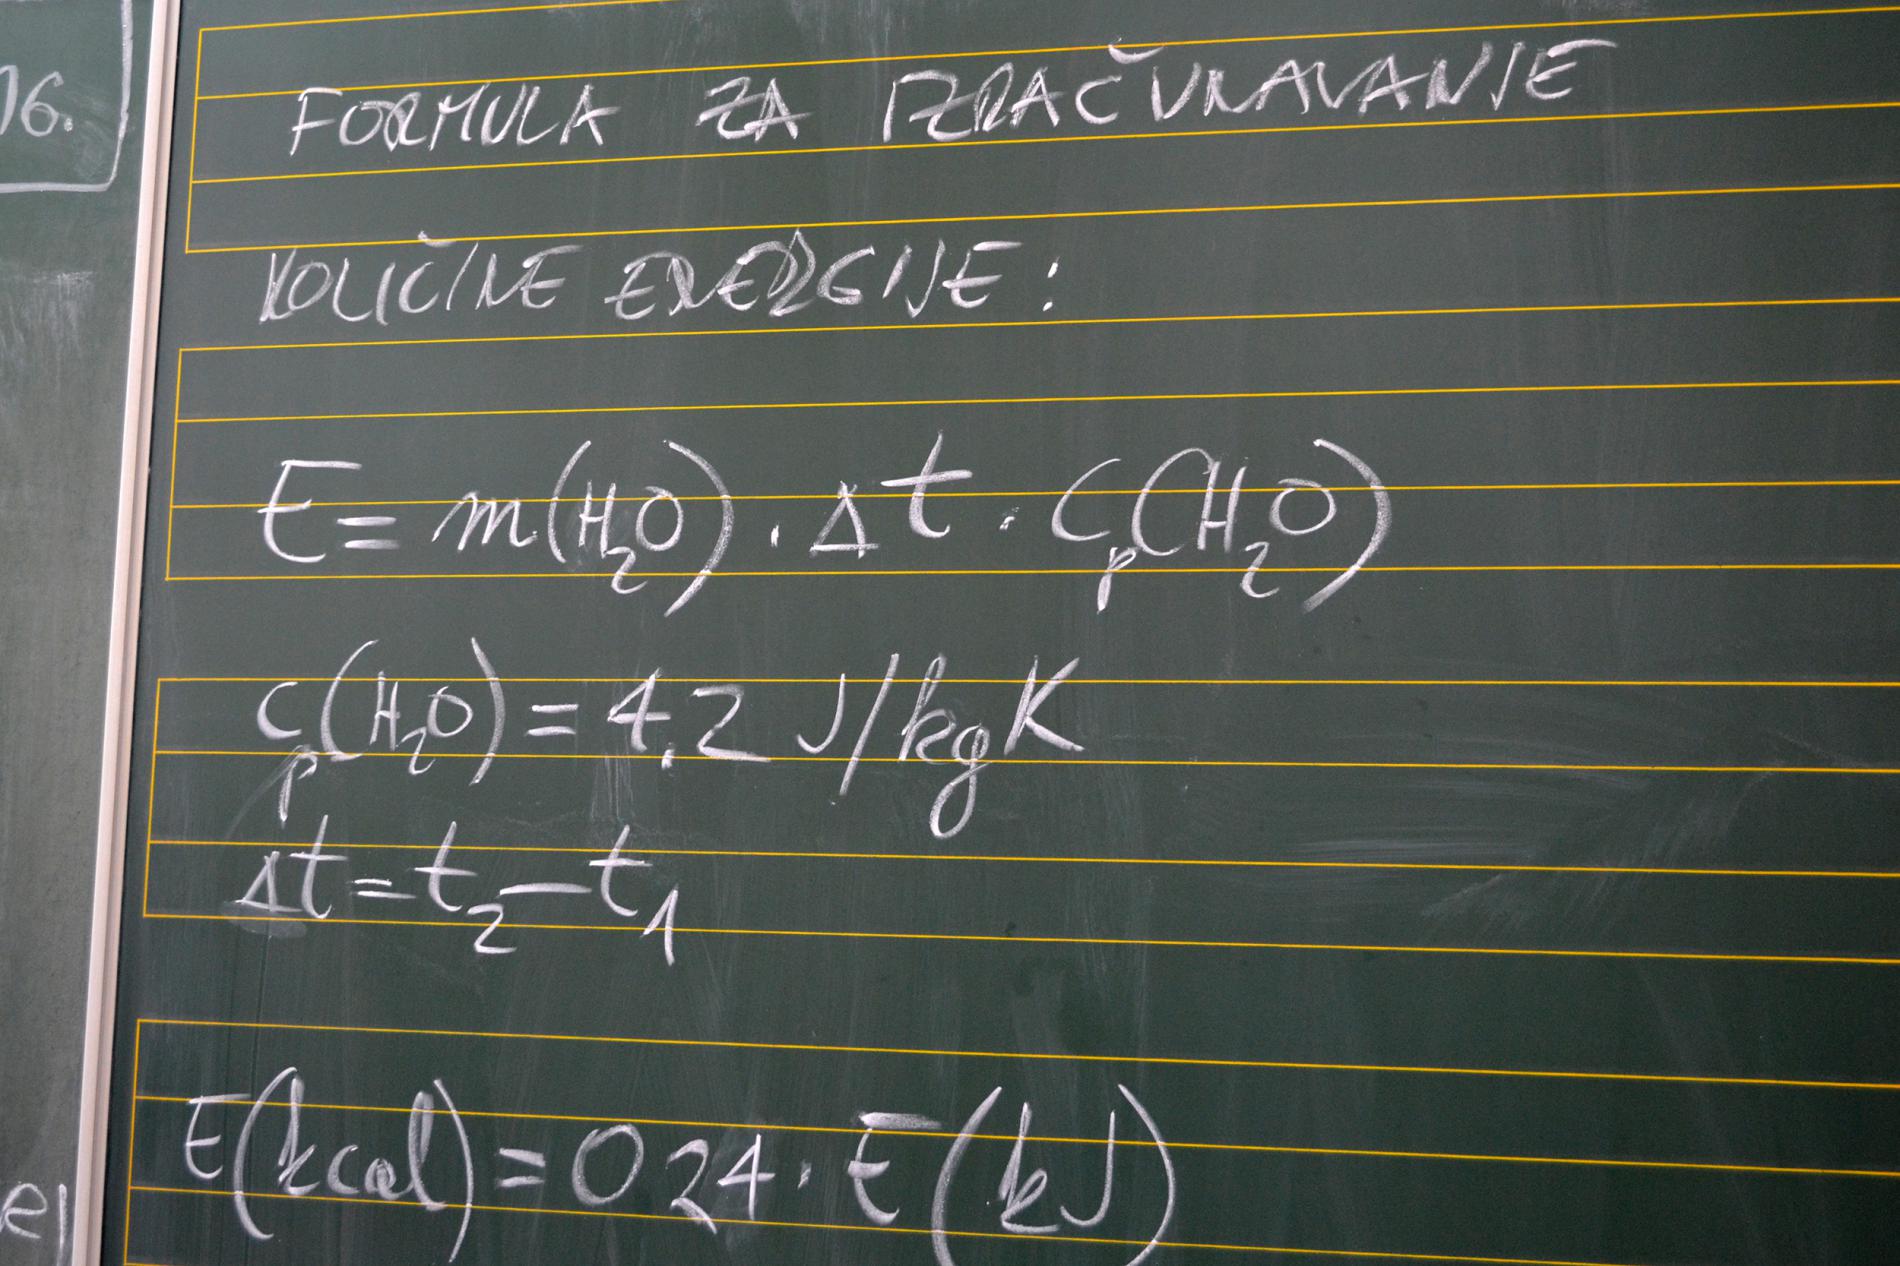 16.
FORMULA ZA IZRAČUNAVANJE
KOLIČINE ENERGIJE:
E = m(H₂O) · Δt · Cp(H₂O)
Cp(H₂O) = 4,2 J/kgK
Δt = t₂ – t₁
E(kcal) = 0 24 · E(kJ)